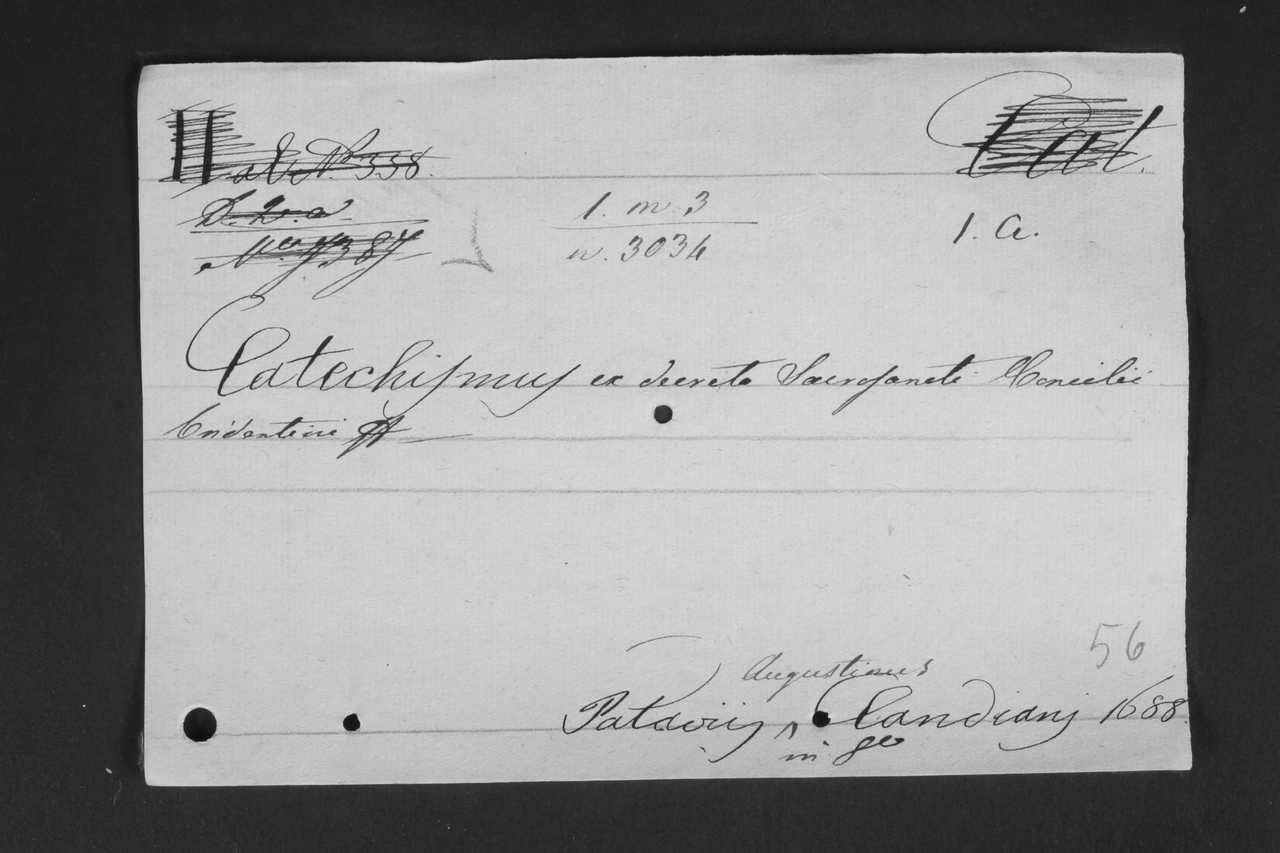 Cat.
N. 358.
D. 2. a
1. m. 3
1. a.
n. 3034
Catechismus ex decreto Sacrosancti Concilii
Tridentini
56
Augustinus
Patavii Candiani 1688.
in 8vo